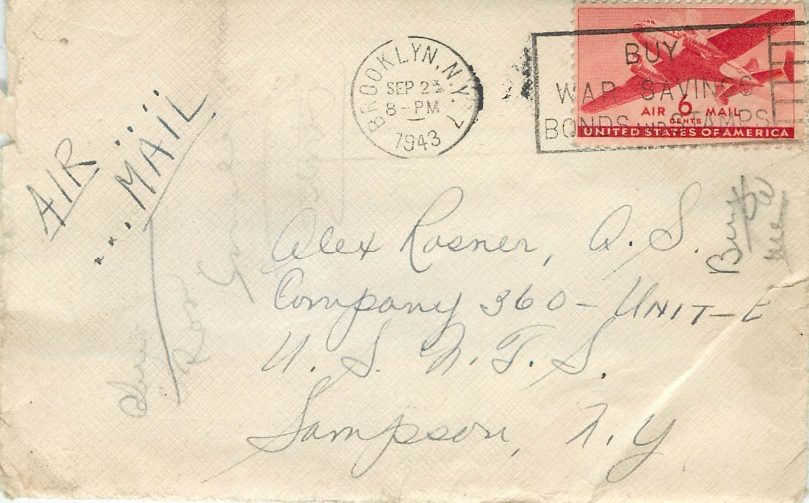 BROOKLYN, N.Y. 7
SEP 23
8-PM
1943
BUY
WAR SAVINGS
BONDS AND STAMPS
AIR 6 MAIL
CENTS
UNITED STATES OF AMERICA
AIR
MAIL
Alex Rosner, A. S.
Company 360-UNIT-E
U. S. N. T. S.
Sampson, N. Y